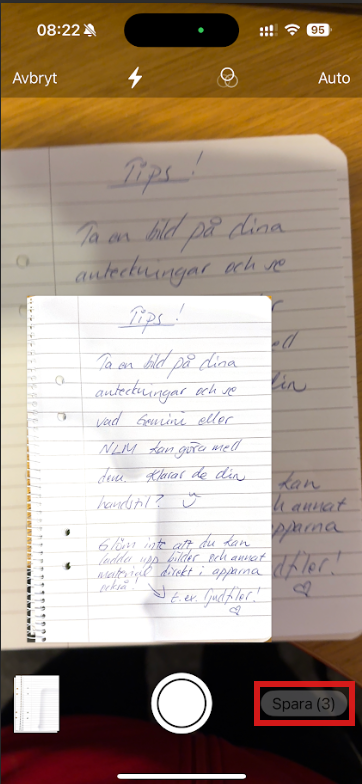 08:22
95
Avbryt
Auto
Tips!
Ta en bild på dina
anteckningar och se
Tips!
Ta en bild på dina
anteckningar och se
vad Gemini eller
NLM kan göra med
dem. Klarar de din
handstil?
Glöm inte att du kan
ladda upp bilder och annat
material direkt i apparna
också!
t.ex. ljudfiler!
din
kan
h annat
apparna
ljudfiler!
Spara (3)